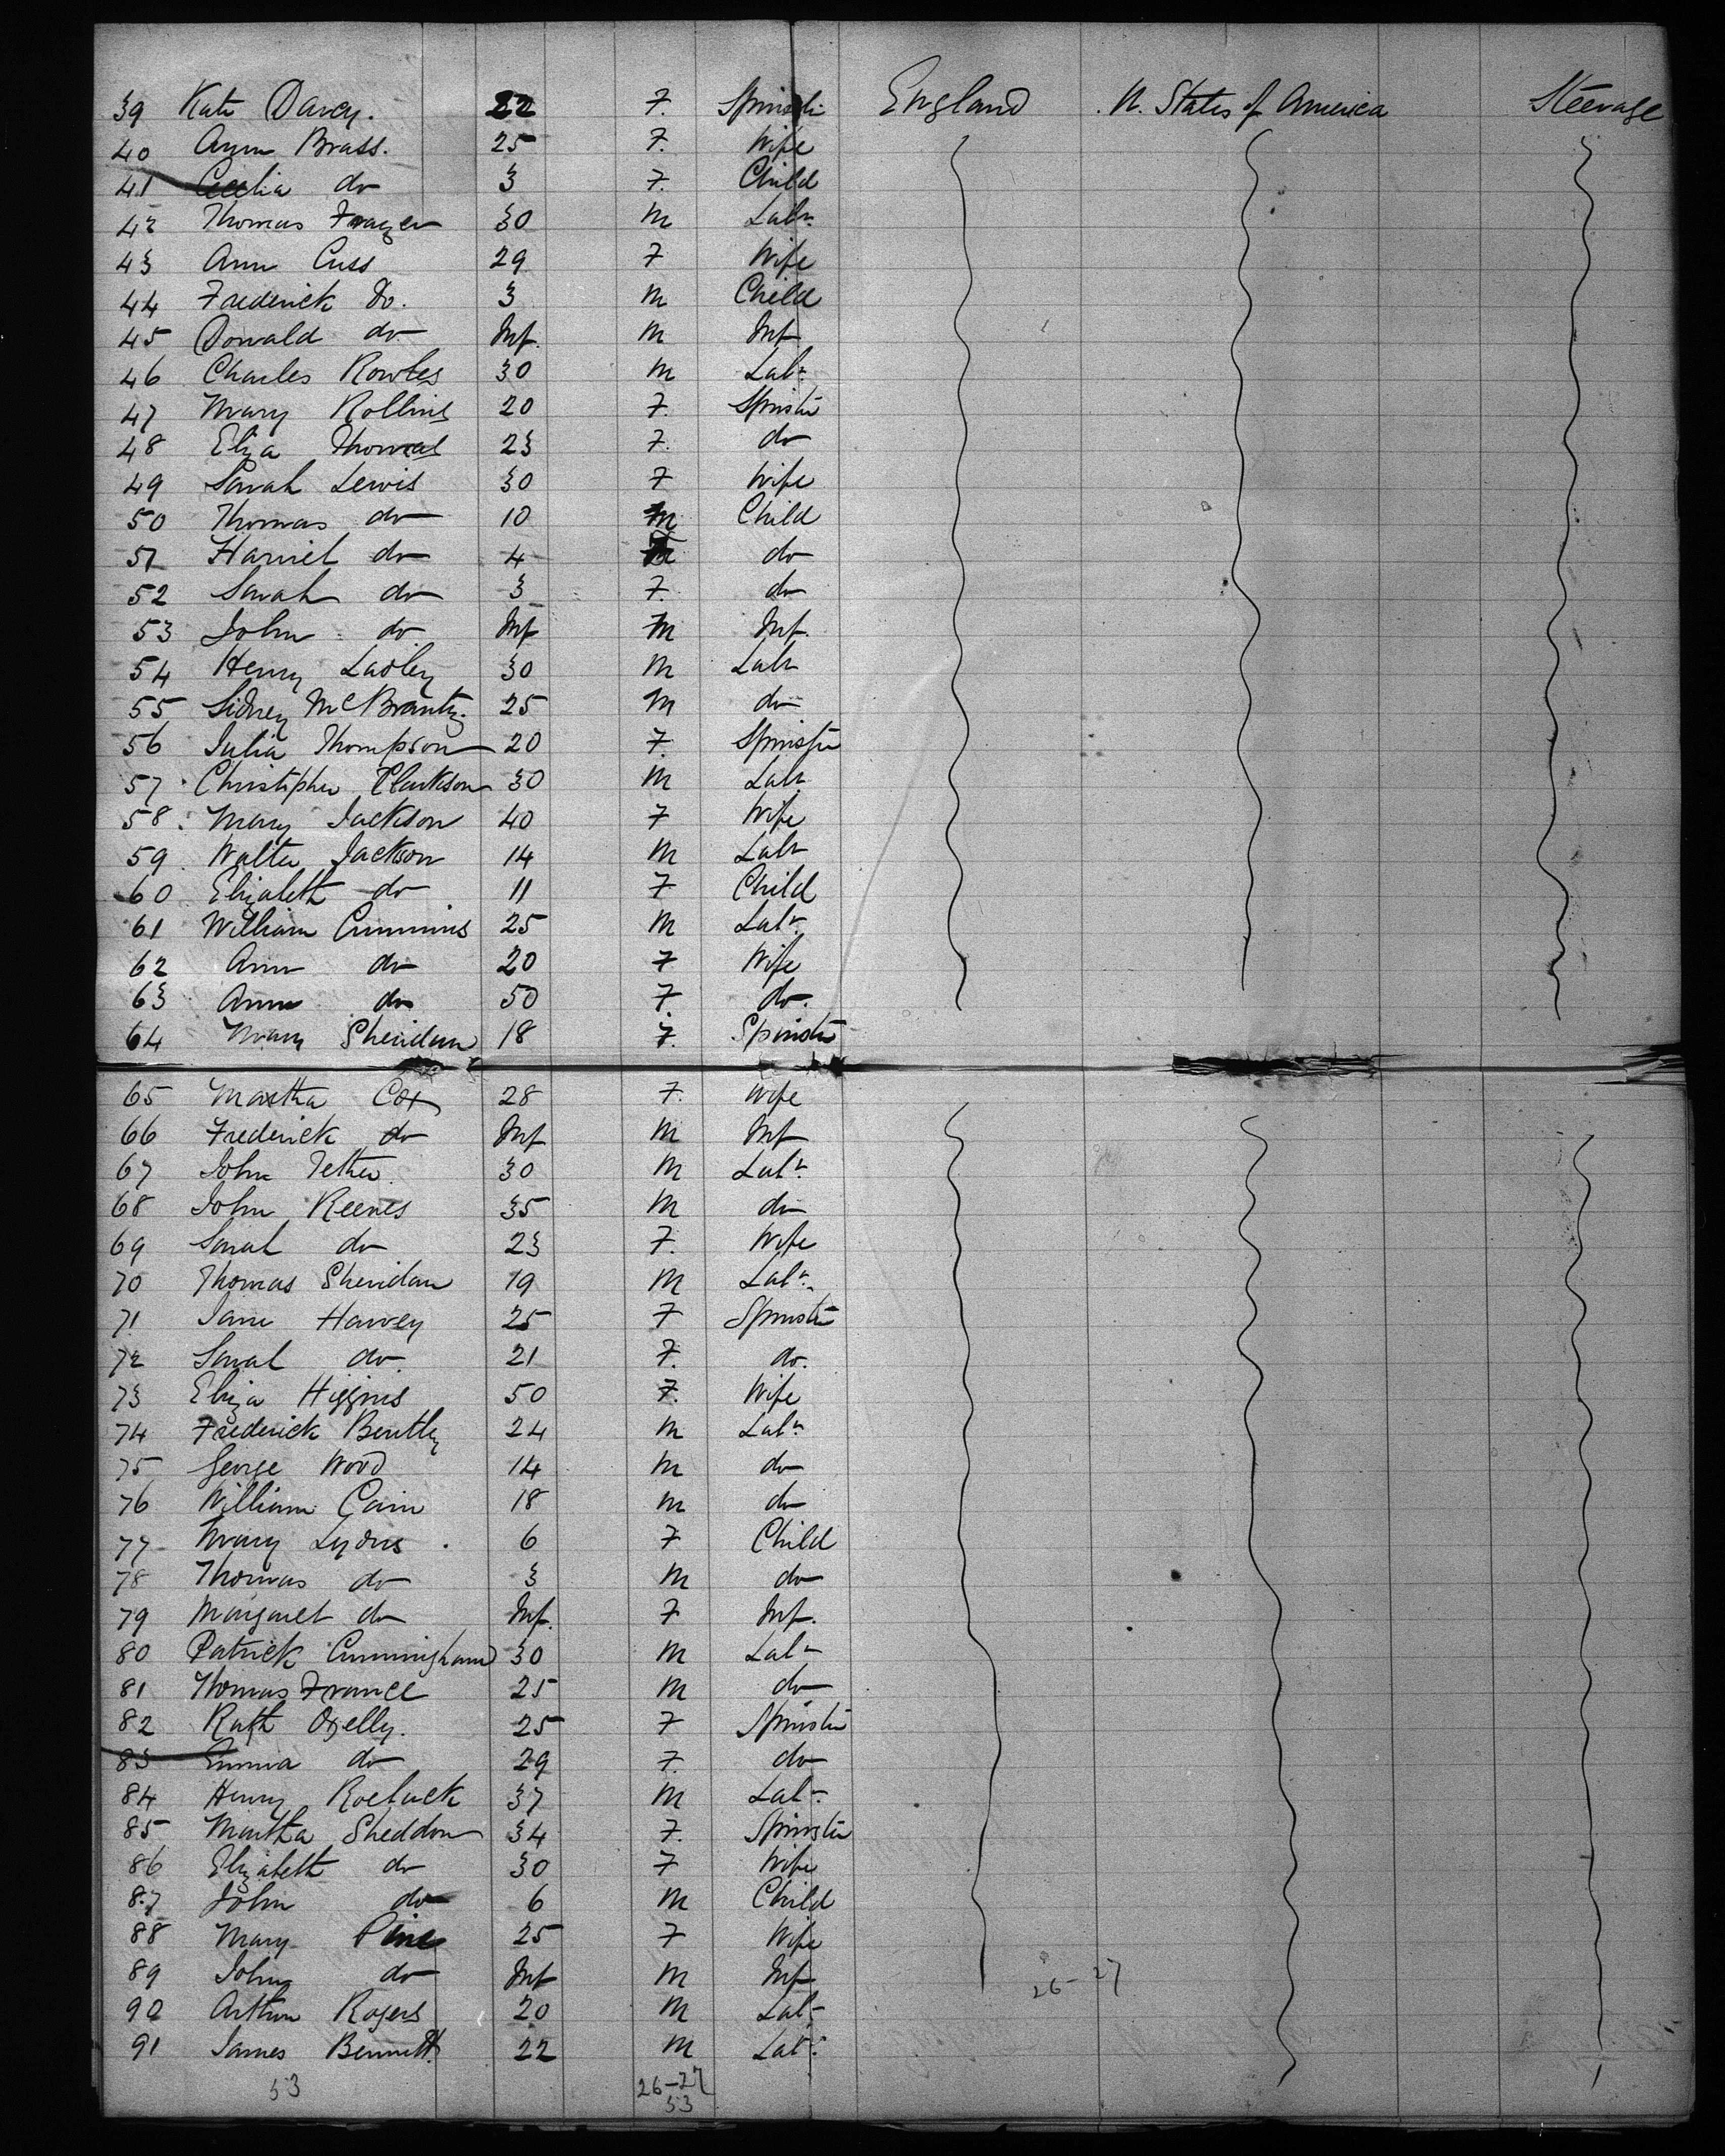 39 Kate Darcy. 22 F. Spinster England U. States of America Steerage
40 Ann Brass. 25 F. Wife
41 Cecelia do 3 F. Child
42 Thomas Frazer 30 M Labr.
43 Ann Cuss 29 F Wife
44 Frederick Do. 3 M Child
45 Donald do Inf. M Inf.
46 Charles Rowles 30 M Labr.
47 Mary Rollins 20 F. Spinster
48 Eliza Thomas 23 F. do
49 Sarah Lewis 30 F Wife
50 Thomas do 10 M Child
51 Harriet do 4 do
52 Sarah do 3 F. do
53 John do Inf M Inf.
54 Henry Ladley 30 M Labr
55 Sidney 25 M do
56 Julia Thompson 20 F. Spinster
57 Christopher Clarkson 30 M Labr
58 Mary Jackson 40 F Wife
59 Walter Jackson 14 M Labr
60 Elizabeth do 11 F Child
61 William Cummins 25 M Labr.
62 Ann do 20 F Wife
63 Ann do 50 F. do.
64 Mary Sheridan 18 F. Spinster
65 Martha Cox 28 F. Wife
66 Frederick do Inf M Inf
67 John Tether. 30 M Labr.
68 John Reeves 35 M do
69 Sarah do 23 F. Wife
70 Thomas Sheridan 19 M Labr.
71 Jane Harvey 25 F Spinster
72 Sarah do 21 F. do.
73 Eliza Higgins 50 F. Wife
74 Frederick Bentley 24 M Labr.
75 George Wood 14 M do
76 William Cain 18 M do
77 Mary Lyons. 6 F Child
78 Thomas do 3 M do
79 Margaret do Inf. F Inf.
80 Patrick Cunningham 30 M Labr
81 Thomas France 25 M do
82 25 F Spinster
83 Emma do 29 F. do
84 Henry Roebuck 37 M Labr.
85 Martha Sheddon 34 F. Spinster
86 Elizabeth do 30 F Wife
87 John do 6 M Child
88 Mary Pine 25 F Wife
89 John do Inf M Inf
26-27
90 Arthur Rogers 20 M Labr
91 James Bennett. 22 M Labr.
53 26-27
53